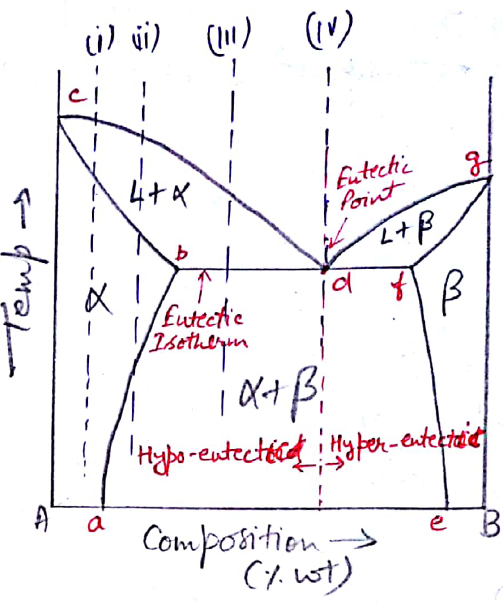 (i) (ii) (III) (IV)
c
g
Eutectic
Point
L+α
L+β
b
d
f
α
β
Eutectic
Isotherm
Temp →
α+β
Hypo-eutectic
Hyper-eutectic
A a e B
Composition →
(% wt)